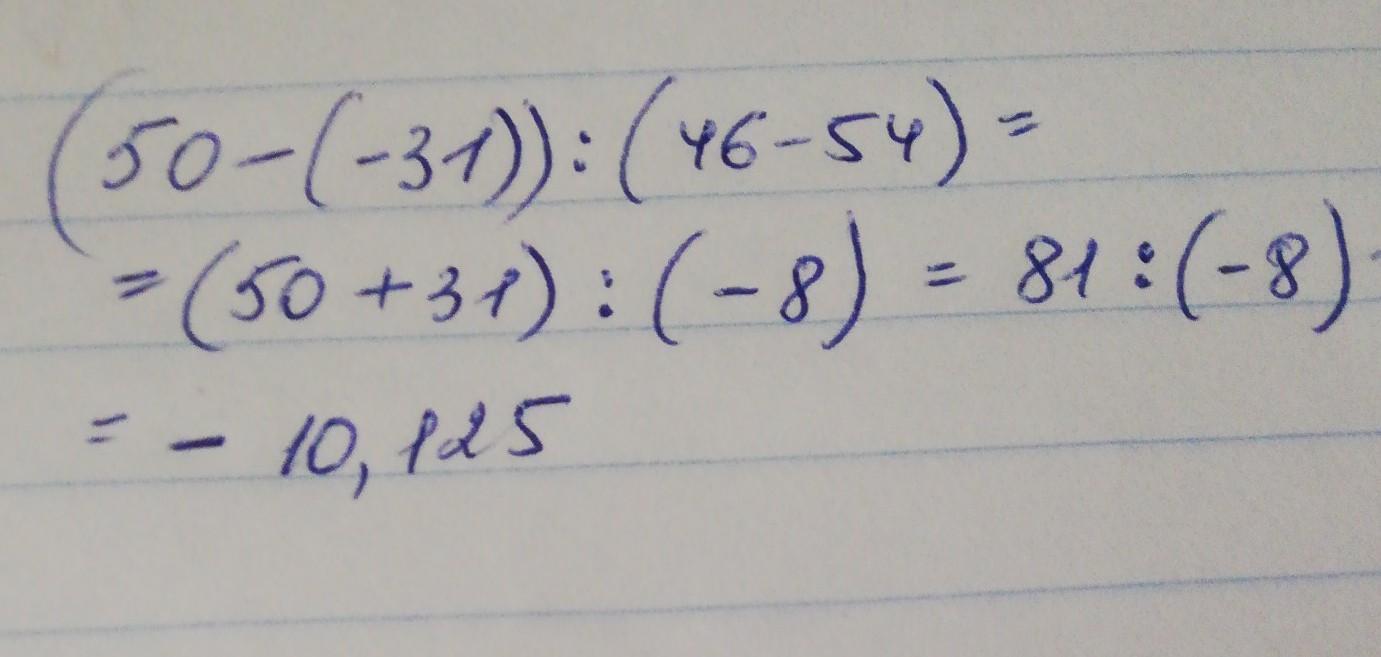 (50-(-31)):(46-54)=
=(50+31):(-8)=81:(-8)
=-10,125